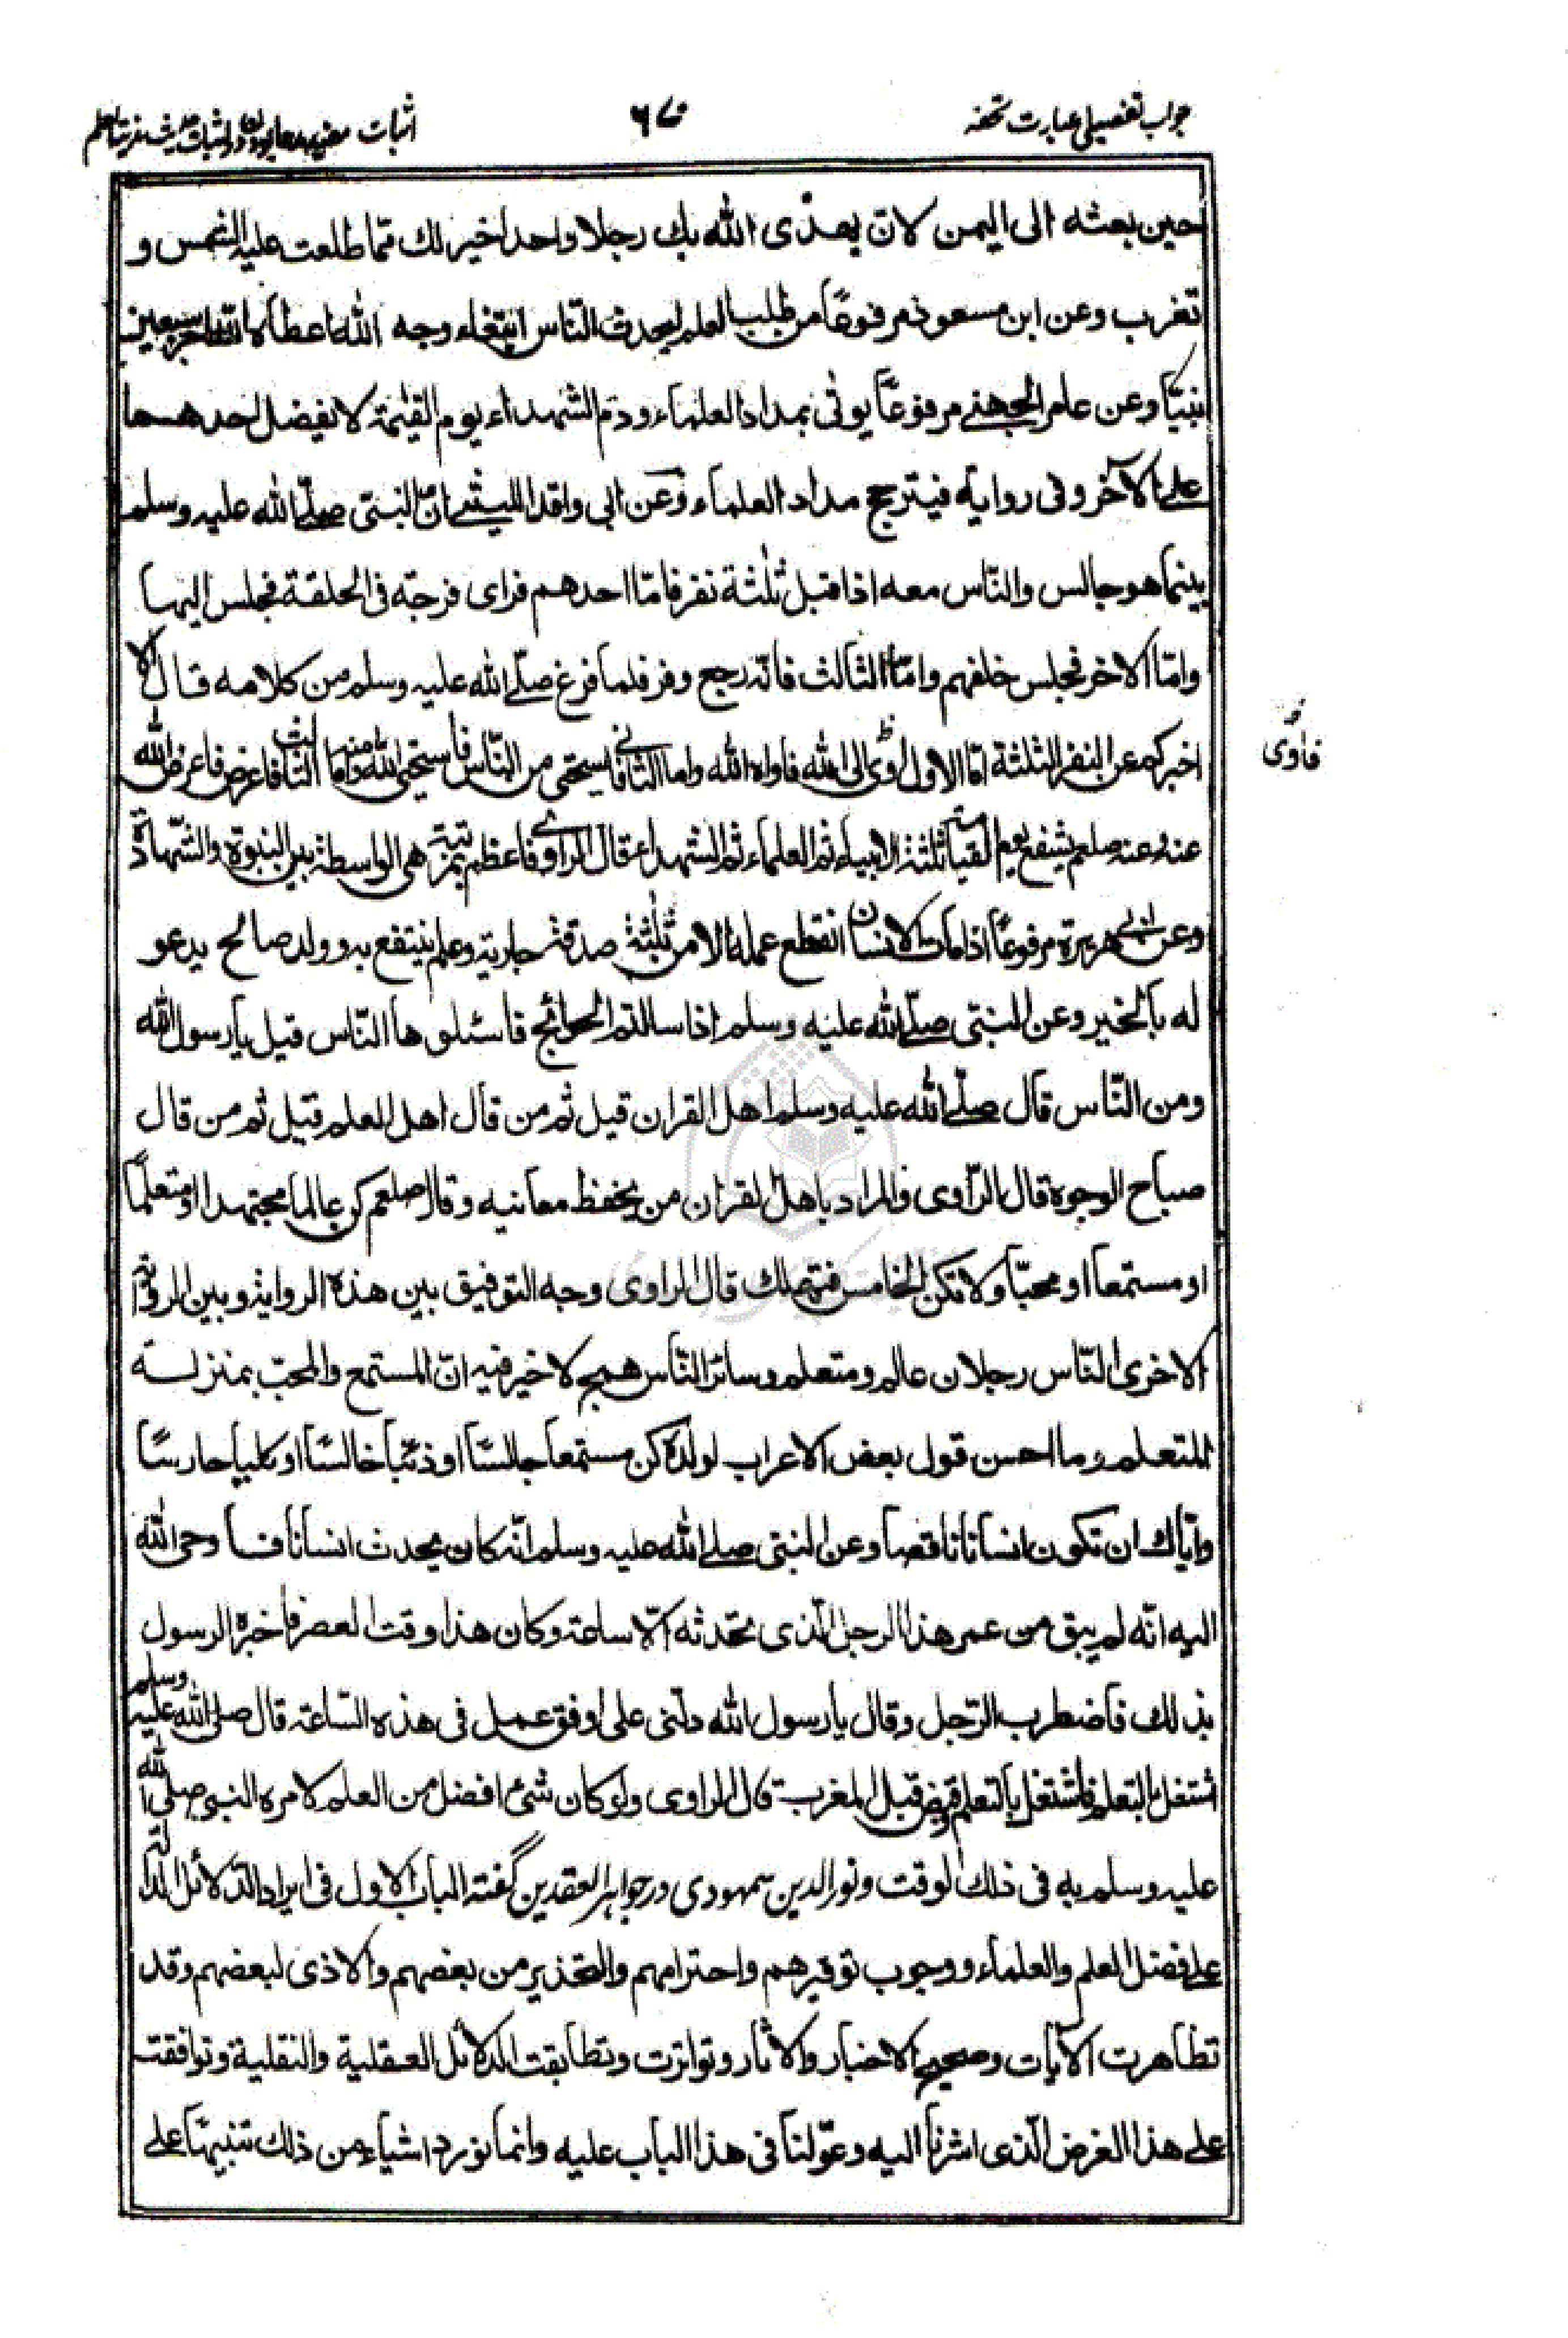 جواب تفصیلی عبارت تحفه
۶۷۰
اثبات
حين بعثه الى اليمن لان يهدى الله بك رجلا واحدا خير لك مما طلعت عليه الشمس و
تغرب وعن ابن مسعود مرفوعًا من طلب العلم ليحدث النّاس ابتغاء وجه الله اعطاه الله اجر سبعين
نبيّا وعن عامر الجهنے مرفوعًا يوتٰى بمداد العلماء ودم الشهداء يوم القيٰمة لا يفضل احدهما
علے الآخر وفى رواية فيترجح مداد العلماء وعن ابى واقد الليثے انّ النبىّ صلّے الله عليه وسلم
بينما هو جالس والنّاس معه اذا قبل ثلٰثة نفر فامّا احدهم فراى فرجة فى الحلقة فجلس اليها
وامّا الاخر فجلس خلفهم وامّا الثالث فانّه رجع وفر فلما فرغ صلّے الله عليه وسلم من كلامه قال الا
اخبركم عن النفر الثلثة امّا الاول اوٰى الى الله فاواه الله واما الثانے فاستحيى من النّاس فاستحيى الله منه واما الثالث فاعرض فاعرض الله
فاٰوٰى
عنه وعنه صلعم يشفع يوم القيامة ثلثة الانبياء ثم العلماء ثم الشهداء قال الراوے فاعظم بمرتبة هى الواسطة بين النبوة والشّهادة
وعن ابى هريرة مرفوعًا اذا مات الانسان انقطع عمله الا من ثلٰثة صدقة جارية وعلم ينتفع به وولد صالح يدعو
له بالخير وعن النبىّ صلّے الله عليه وسلم اذا سالتم الحوائج فاسئلوها النّاس قيل يا رسول الله
ومن النّاس قال صلّے الله عليه وسلم اهل القران قيل ثم من قال اهل العلم قيل ثم من قال
صباح الوجوه قال الرّاوى والمراد باهل القران من يحفظ معانيه وقال صلعم كن عالما مجتهدا او متعلمًا
او مستمعا او محبّا ولا تكن الخامس فتهلك قال الراوى وجه التوفيق بين هذه الرواية وبين الرواية
الاخرى النّاس رجلان عالم ومتعلم وسائر النّاس همج لا خير فيه انّ المستمع والمحبّ بمنزلة
المتعلم وما احسن قول بعض الاعراب لولده كن مستمعا جالسًا او ذئبا خالسًا او كلبا حارسًا
وايّاك ان تكون انسانا ناقصا وعن النبىّ صلے الله عليه وسلم انّه كان يحدث انسانا فاوحى الله
اليه انّه لم يبق من عمر هذا الرجل الّذى تحدثه الّا ساعة وكان هذا وقت العصر فاخبره الرسول
بذلك فاضطرب الرّجل وقال يا رسول الله دلّنى على اوفق عمل فى هذه السّاعة قال صلى الله عليه وسلم
اشتغل بالتعلم فاشتغل بالتعلم وقبض قبل المغرب قال الراوى ولو كان شئ افضل من العلم لامره النبى صلى الله
عليه وسلم به فى ذلك الوقت ونور الدين سمهودى در جواهر العقدين گفته الباب الاول فى ايراد الدّلائل الدالة
علے فضل العلم والعلماء ووجوب توقيرهم واحترامهم والتحذير من بغضهم والاذى لبعضهم وقد
تظاهرت الآيات وصحيح الاخبار والاثار وتواترت وتطابقت الدلائل العقلية والنقلية وتوافقت
على هذا الغرض الّذى اشرنا اليه وعوّلنا فى هذا الباب عليه وانما نورد اشياء من ذلك تنبيها علے